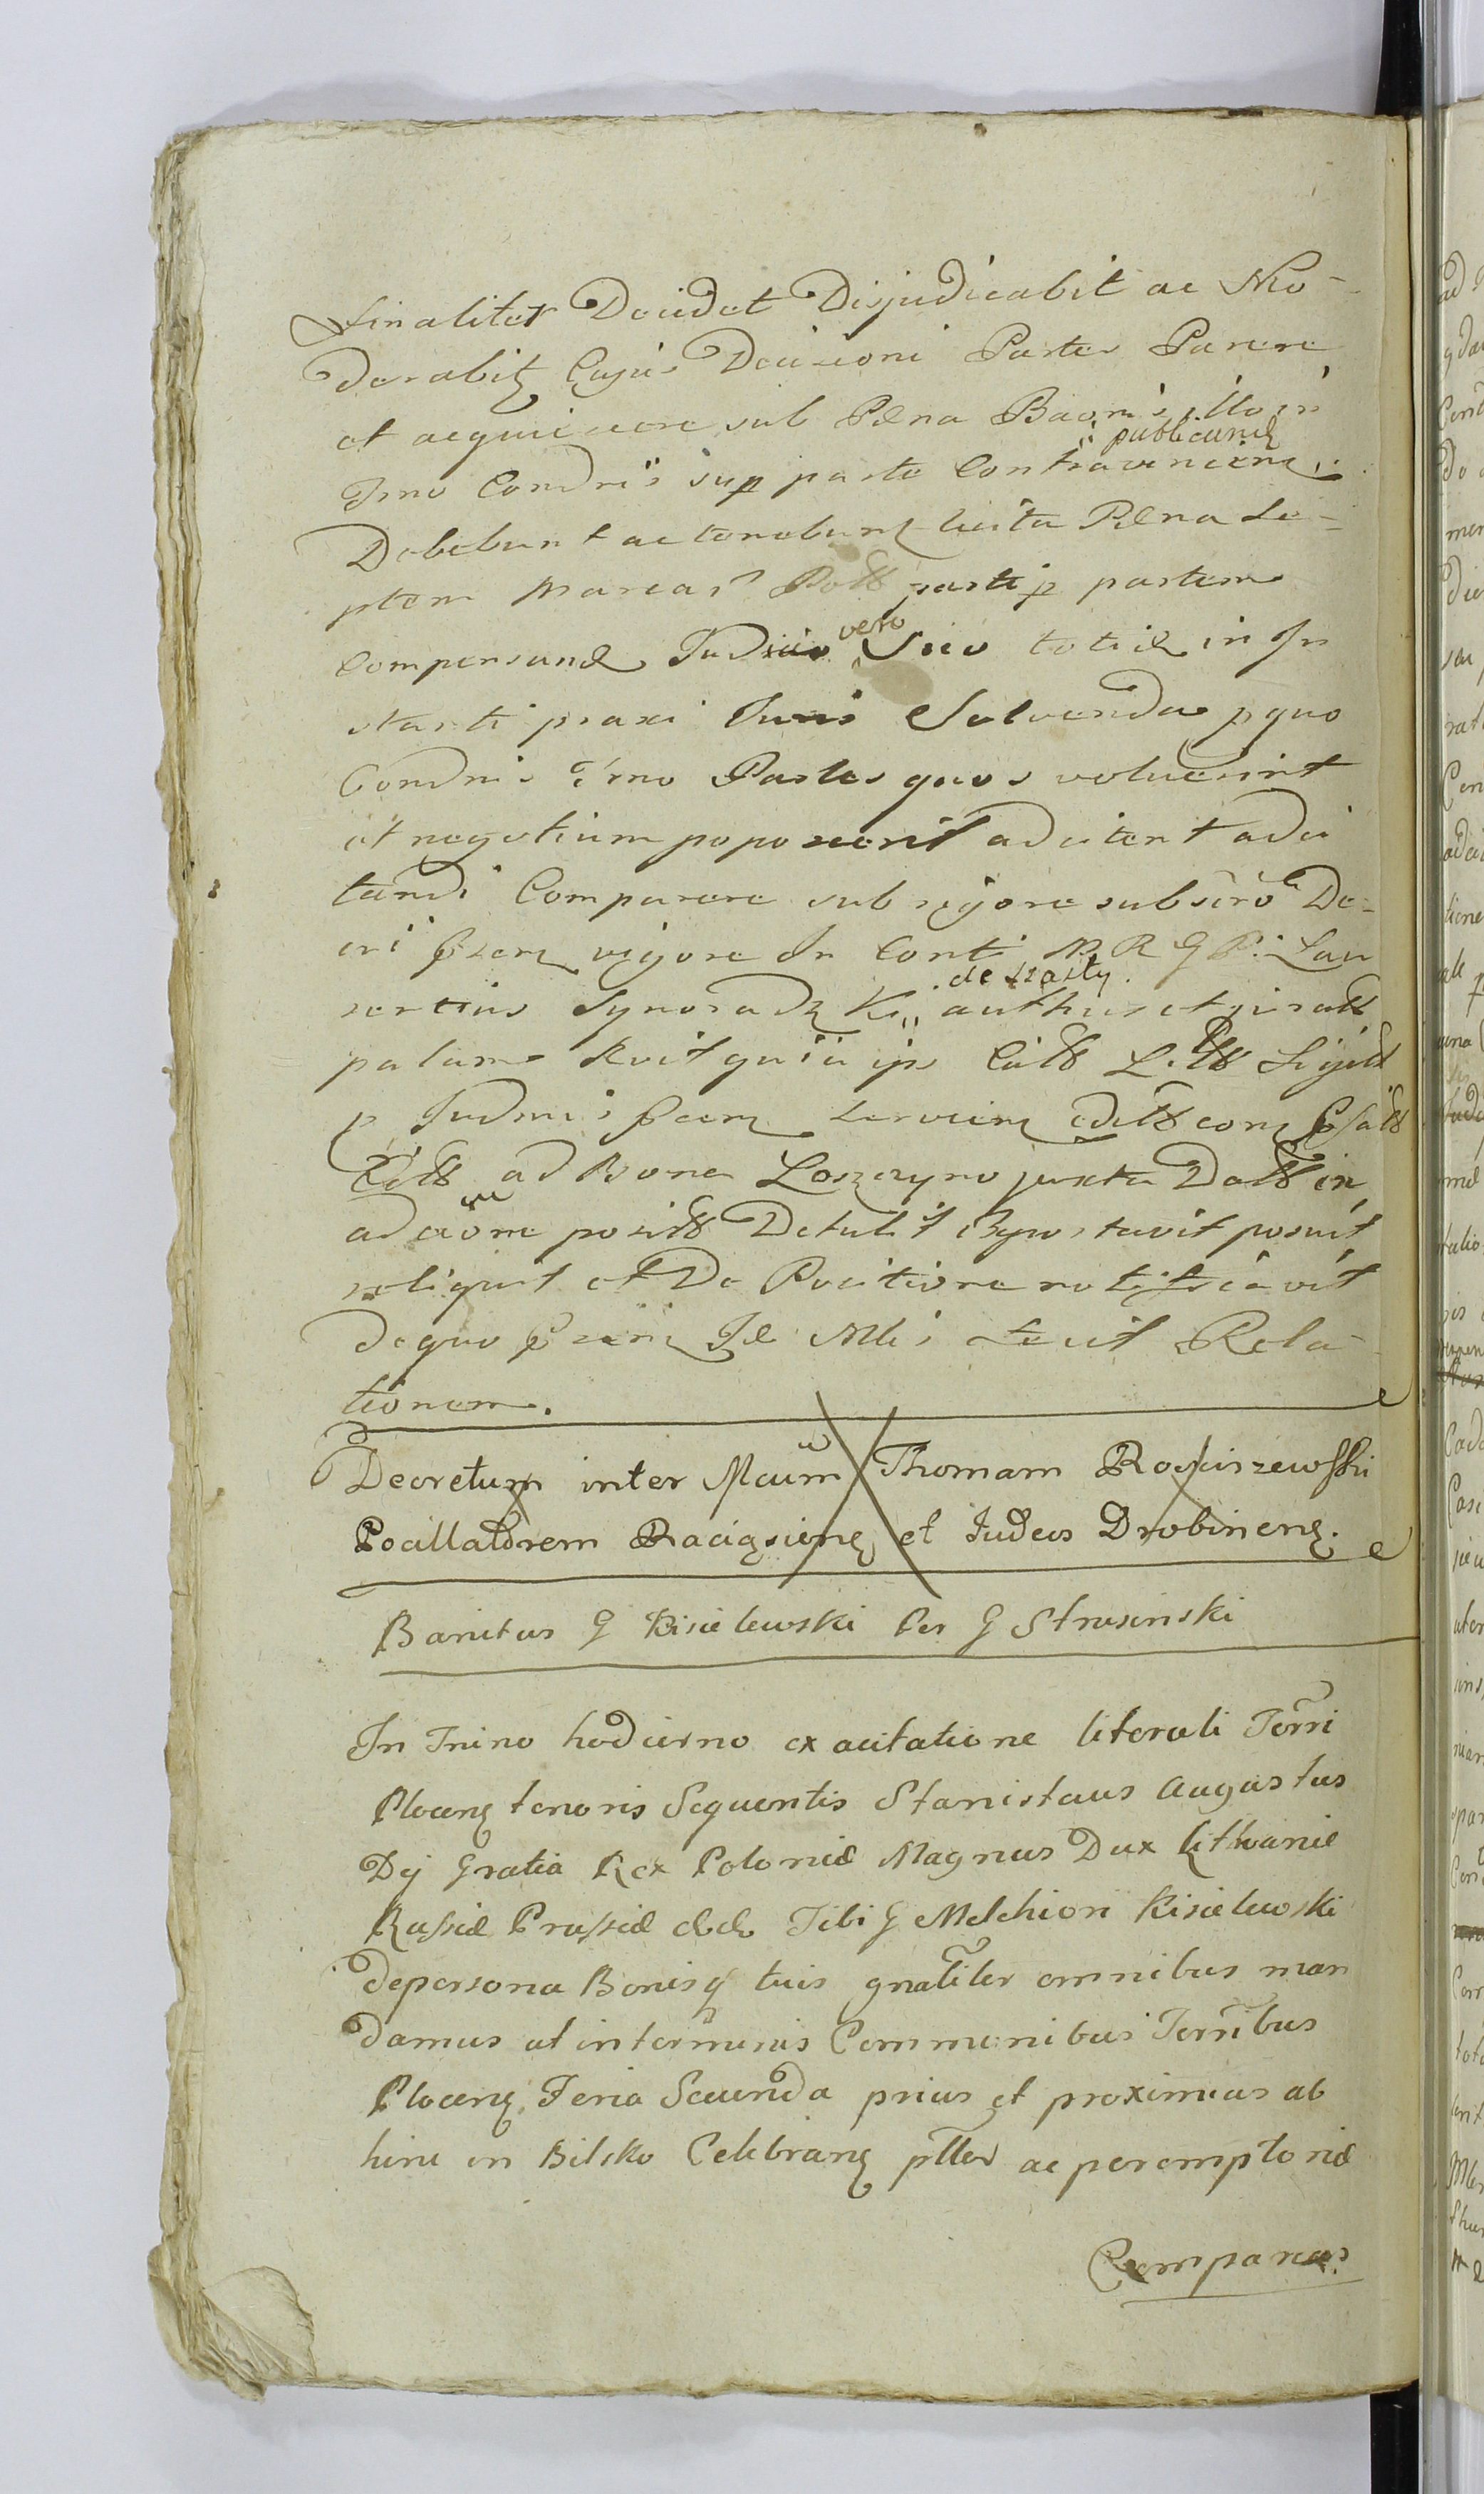 finaliter Decidet Disjudicabit ac Mo-
derabit Cujus Decisioni Partes Parere
et acquiescere sub Pena Baonis illo in
publicand
Trno Condnis sup parte Contravenien
Debebunt ac tenebunt luita Pena Se-
ptem Marcas Poll parti p partem
vero
Compensand Judicio Suo totid in In
stanti praxi Juris Solvenda p quo
Condnis Trno Partes quos voluerint
et negotium poposcerit adcitent adci
tandi Comparere sub rigore subscro De-
cri pnen vigore In Cont M R G P. Lau
de szasty
rentius Synoradz K authus et jurall
palam Rvit quia ips
p Judm
ad Bona Loszczyno juxta Dall in
adcone posill Detulit posuit
reliquit et De Positione notificavit
de quo Id Mlis fecit Rela-
tionem.
Decretum inter Mcum Thomam Rościszewski
Pocillatorem Raciązsien et Iudeos Drobinen.
Banitus G Kisielewski Per G Strusinski
In Tnino hodierno ex acitatione literali Terri
Plocen tenoris Sequentis Stanislaus Augustus
Dej Gratia Rex Poloniæ Magnus Dux Lithvaniæ
Russiæ Prussiæ &c& Tibi G Melchiori Kisielewski
de persona Bonisq tuis gnaliter omnibus man
damus ut in terminis Communibus Terribus
Plocen Feria Secunda prius et proximius ab
hinc in Bilsko Celebran ptler ac peremptorie
Compareas